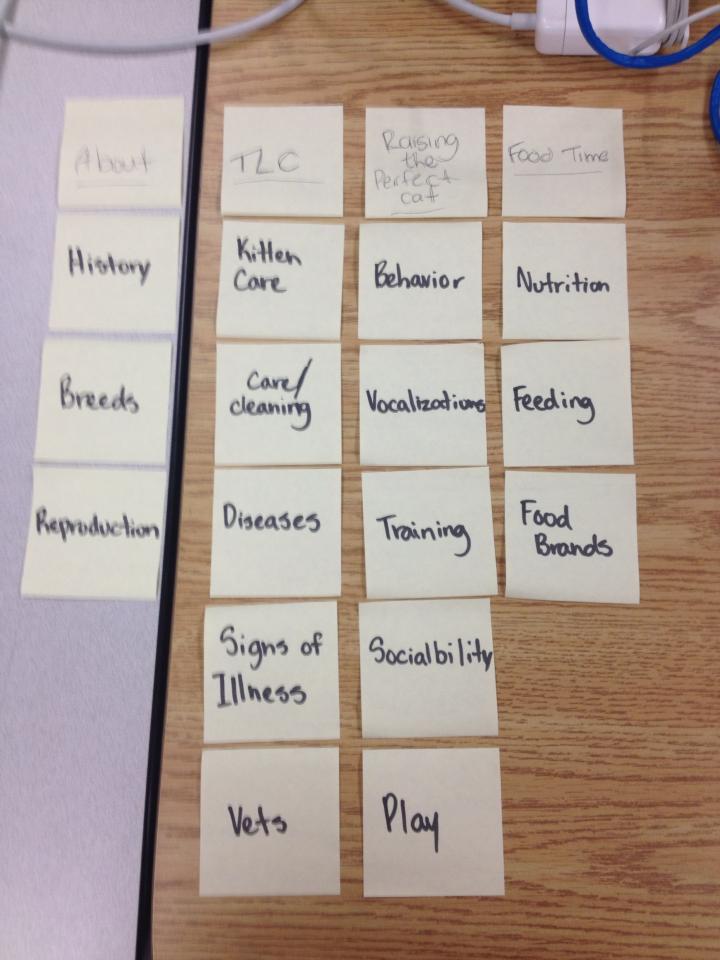 About
History
Breeds
Reproduction
TLC
Kitten
Care
Care/
cleaning
Diseases
Signs of
Illness
Vets
Raising
the
Perfect
Cat
Behavior
Vocalizations
Training
Socialbility
Play
Food Time
Nutrition
Feeding
Food
Brands